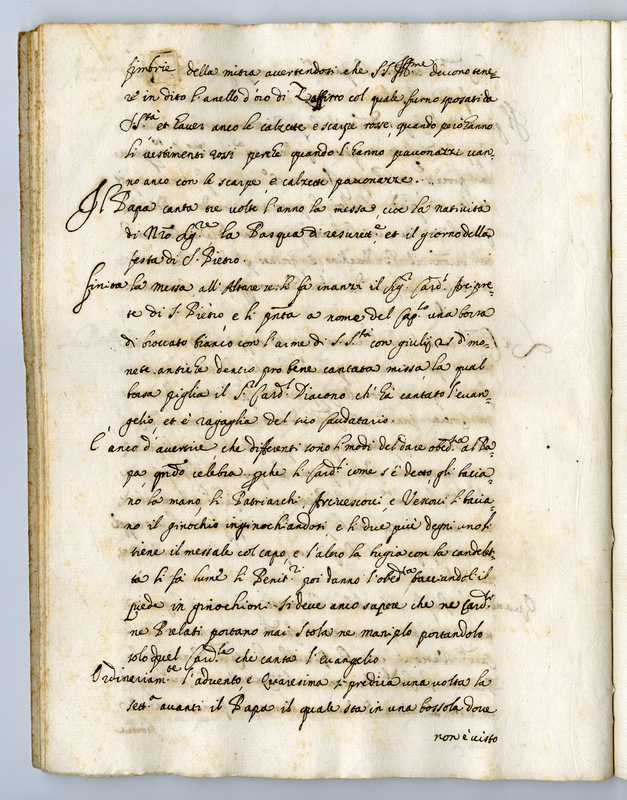 fimbrie della mitra avertendosi che SS. Ill.me devono tene=
re in dito l'anello d'oro di Zaffiro col quale furno sposati da
S. S.tà et haver anco le calzete, e scarpe rosse, quando però hanno
li vestimenti rossi perche quando l'hanno pavonazzi van=
no anco con le scarpe, e calzette pavonazze.
Il Papa canta tre volte l'anno la messa, cioè la natività
di Nro Sig.re la Pasqua di resuret.e et il giorno della
festa di S. Pietro.
Finita la messa all'Altare se li fà inanzi il Sig. Card. Arcipre=
te di S. Pietro e li pnta a nome del Cap.lo una borsa
di broccato bianco con l'arme di S. S.tà con giulij 25 di mo=
nete antiche dencio pro bene cantata missa la qual
borsa piglia il S.r Card.l Diacono ch'hà cantato l'evan=
gelio, et è regaglia del suo Caudatario.
È anco d'avertire che differenti sono li modi del dare obed.za al Pa=
pa qndo celebra, perche li Card.li come s'è detto, gli bacia=
no la mano, li Patriarchi Arcivescovi, e Vescovi li bacia=
no il ginochio inginochiandosi, e li due più degni uno li
tiene il messale col capo, e l'altro la bugia con la candelet=
ta li fà lume li Penit.ri poi danno l'obed.za bacciandoli il
piede in ginochioni. Si deve anco sapere che ne Card.li
ne Prelati portano mai Stola ne manipolo portandolo
solo quel Card.le che canta l'evangelio.
Ordinariam.te l'advento, e Quaresima si predica una volta la
sett.a avanti il Papa il quale sta in una bossola dove
non è visto